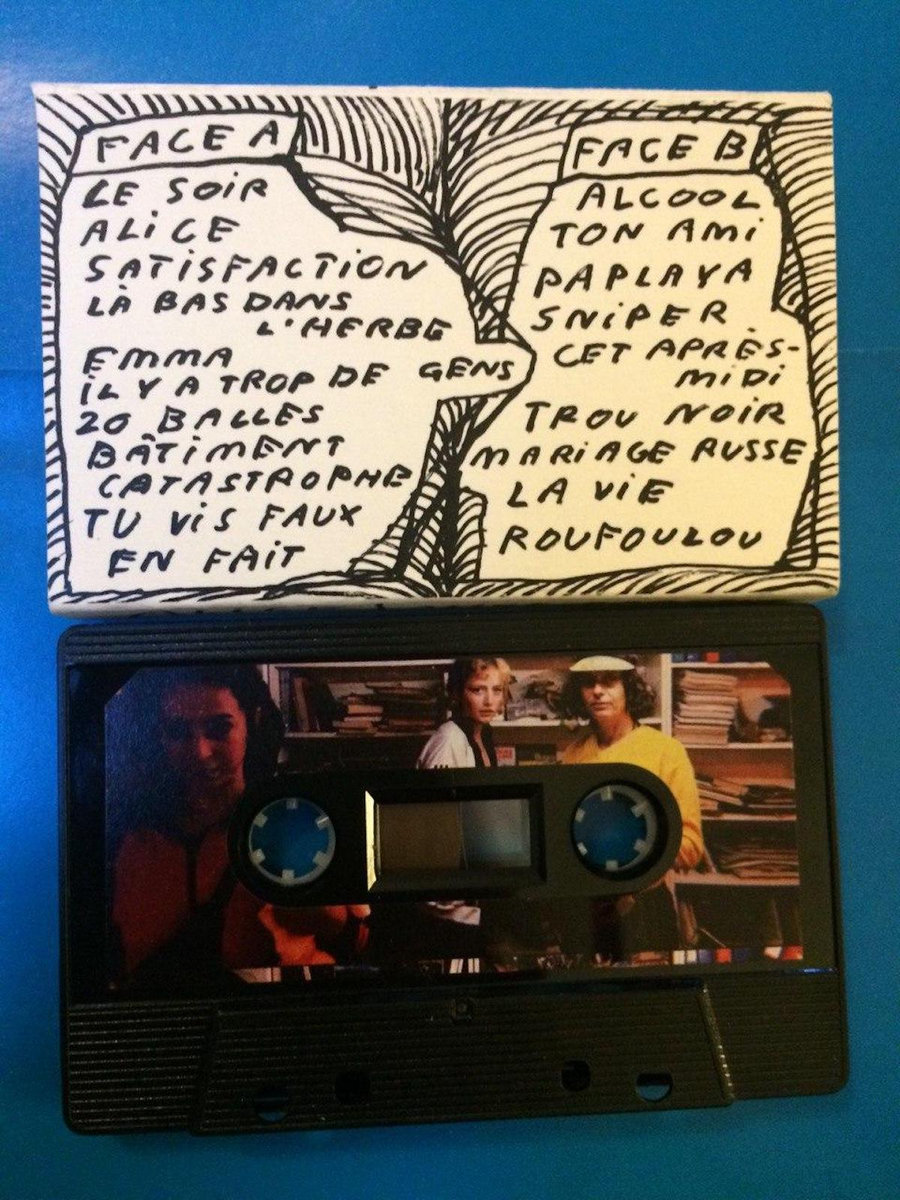 FACE A
LE SOIR
ALiCE
SATiSFACTiON
LÀ BAS DANS
L'HERBE
EMMA
iL Y A TROP DE GENS
20 BALLES
BÂTiMENT
CATASTROPHE
TU ViS FAUX
EN FAiT
FACE B
ALCOOL
TON AMi
PAPLAYA
SNiPER
CET APRÈS-
MiDi
TROU NOiR
MARiAGE RUSSE
LA ViE
ROUFOULOU